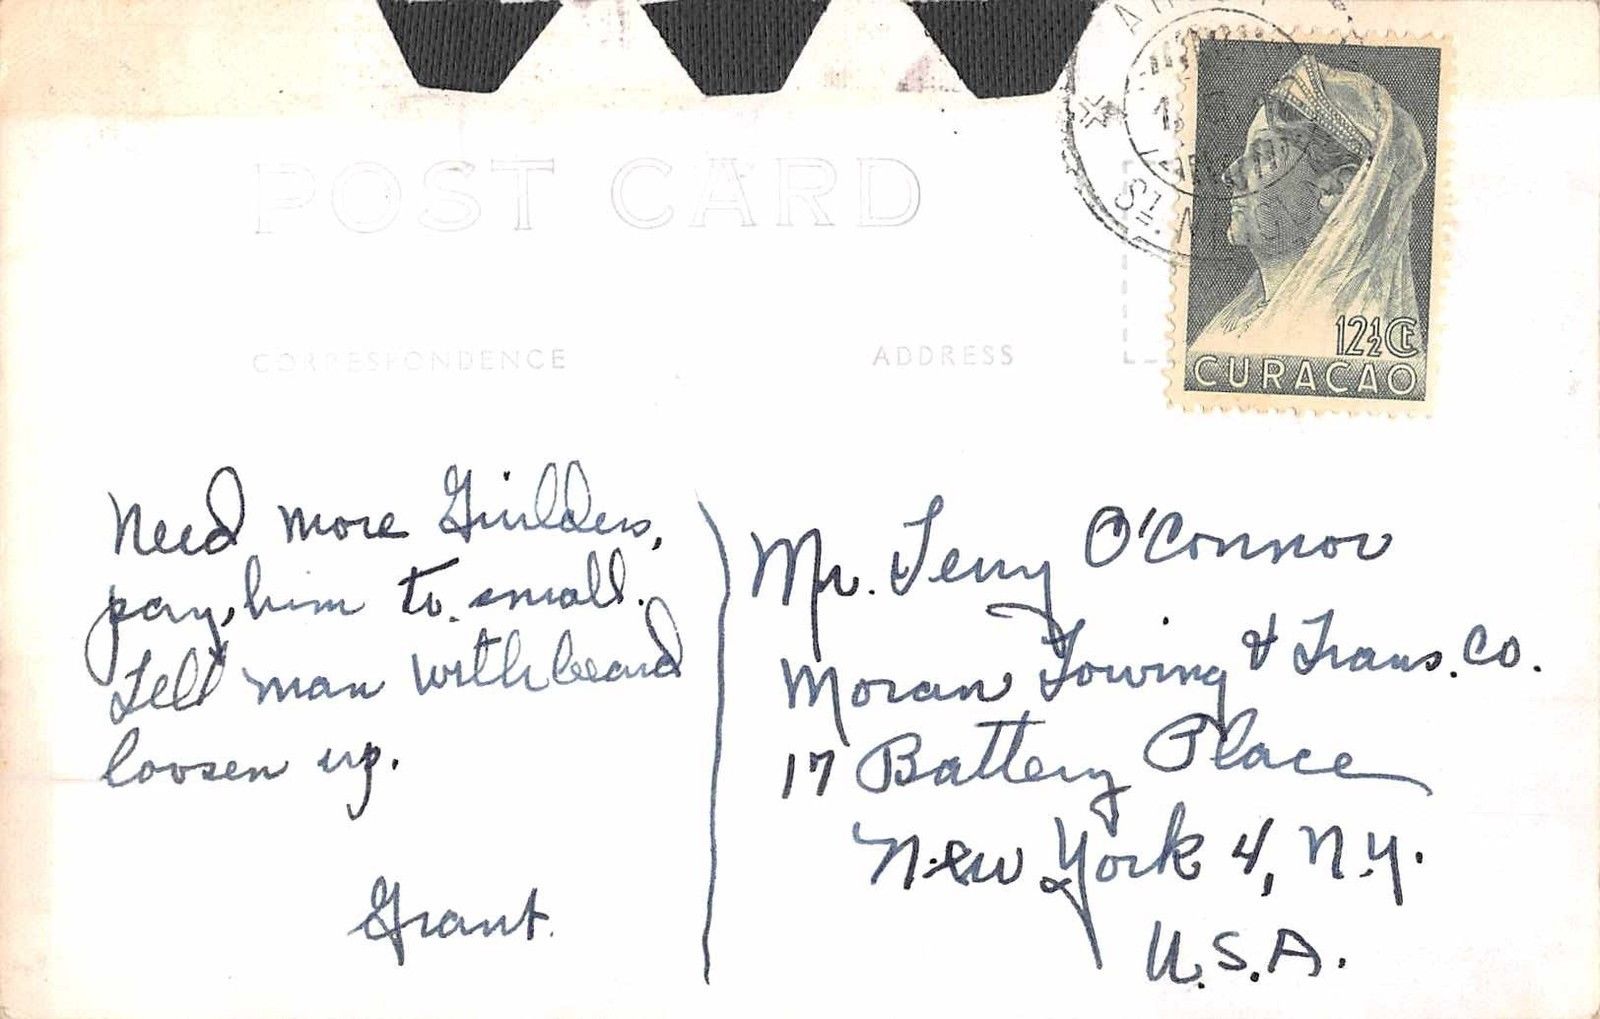 POST CARD
CORRESPONDENCE
ADDRESS
12½ Ct
CURAÇAO
Need more Guilders,
pay, him to small.
Tell man with beard
loosen up.
Grant.
Mr. Terry O'Connor
Moran Towing & Trans. Co.
17 Battery Place
New York 4, N.Y.
U.S.A.